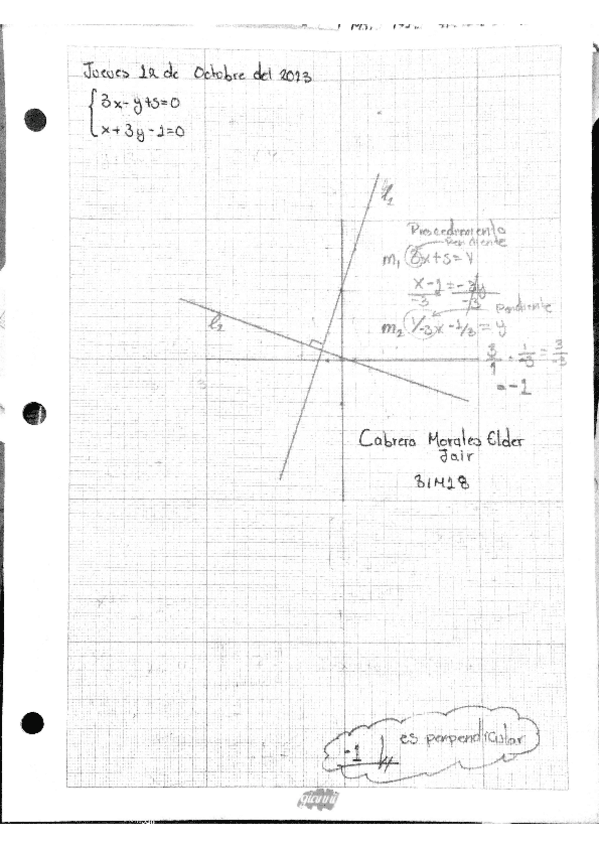 Jueves 12 de Octubre del 2023
3x-y+5=0
x+3y-1=0
l1
Procedimiento
Pendiente
m1 3x+5=y
x-1=-3y
-3 -3
Pendiente
l2
m2 1/-3x-1/3=y
3/1 · 1/-3 = 3/-3
=-1
Cabrera Morales Elder
Jair
3IM18
-1 es perpendicular